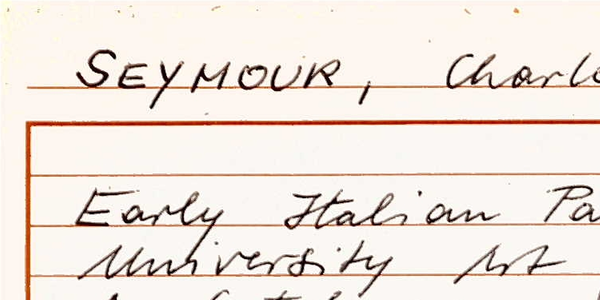 SEYMOUR, Charle
Early Italian Pa
University Art